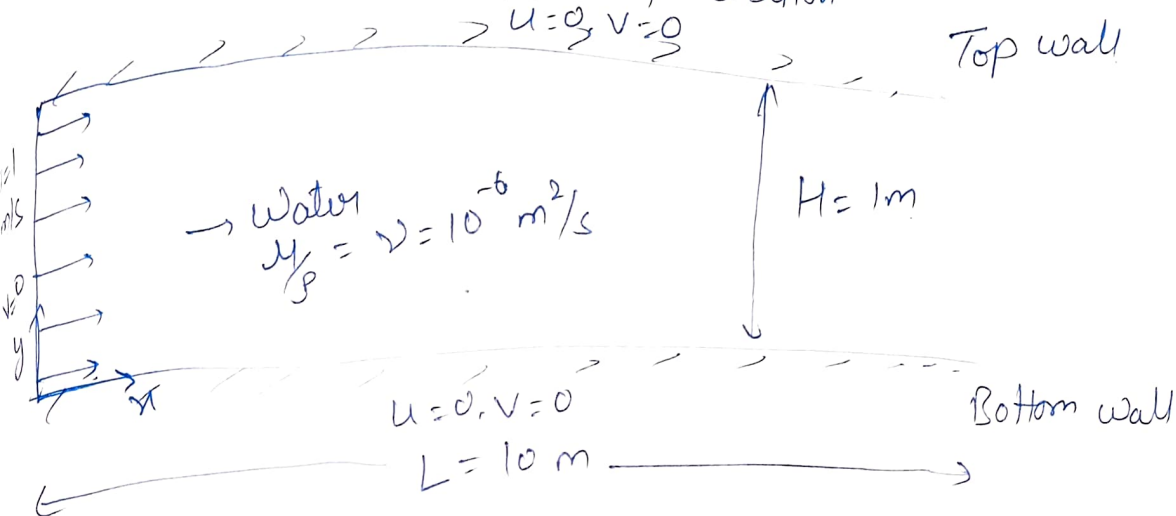 U=0, V=0
Top wall
=1
m/s
→ Water
μ/ρ = ν = 10⁻⁶ m²/s
H = 1m
v=0
y
x
u=0, v=0
Bottom wall
L = 10 m